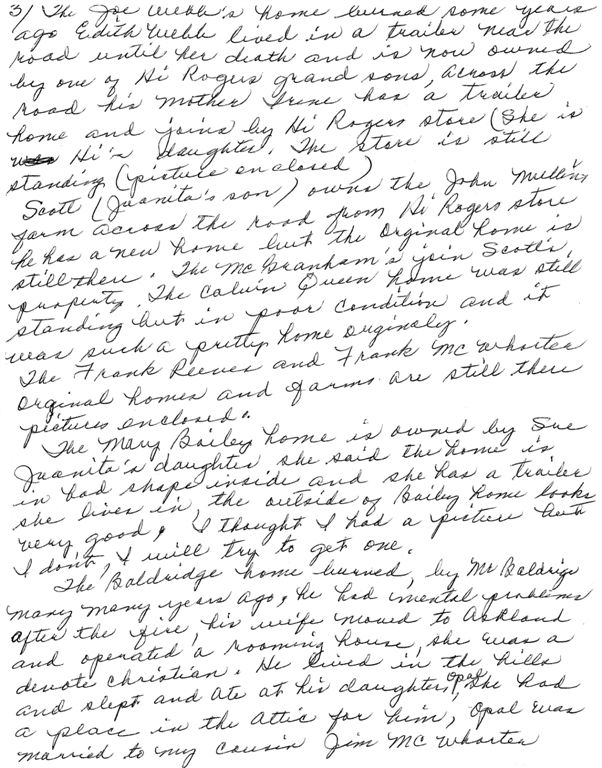 3/ The Joe Webb's home burned some years
ago Edith Webb lived in a trailer near the
road until her death and is now owned
by one of Hi Rogers grand sons, across the
road his mother Irene has a trailer
home and joins by Hi Rogers store (She is
was Hi's daughter. The store is still
standing (picture enclosed)
Scott (Juanita's son) owns the John Mullins
farm across the road from Hi Rogers store
he has a new home but the Orginal home is
still there. The McGranham's join Scott's
property. The Calvin Queen home was still
standing but in poor condition and it
was such a pretty home orginaly.
The Frank Reeves and Frank McWhorter
Orginal homes and farms are still there
pictures enclosed.
The Mary Bailey home is owned by Sue
Juanita's daughter she said the home is
in bad shape inside and she has a trailer
she lives in, the outside of Bailey home looks
very good, I thought I had a picture but
I don't, I will try to get one.
The Baldridge home burned, by Mr Baldrige
many many years ago, he had mental problems
after the fire, his wife moved to Ashland
and operated a rooming house, she was a
devote christian. He lived in the hills
and slept and ate at his daughters, Opal She had
a place in the attic for him, Opal was
married to my cousin Jim McWhorter